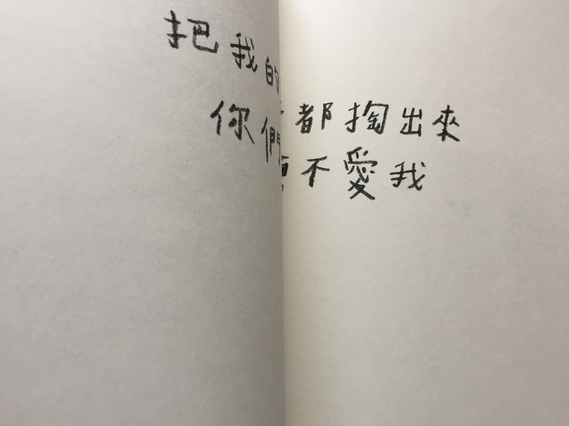 把我的都掏出來
你們不愛我